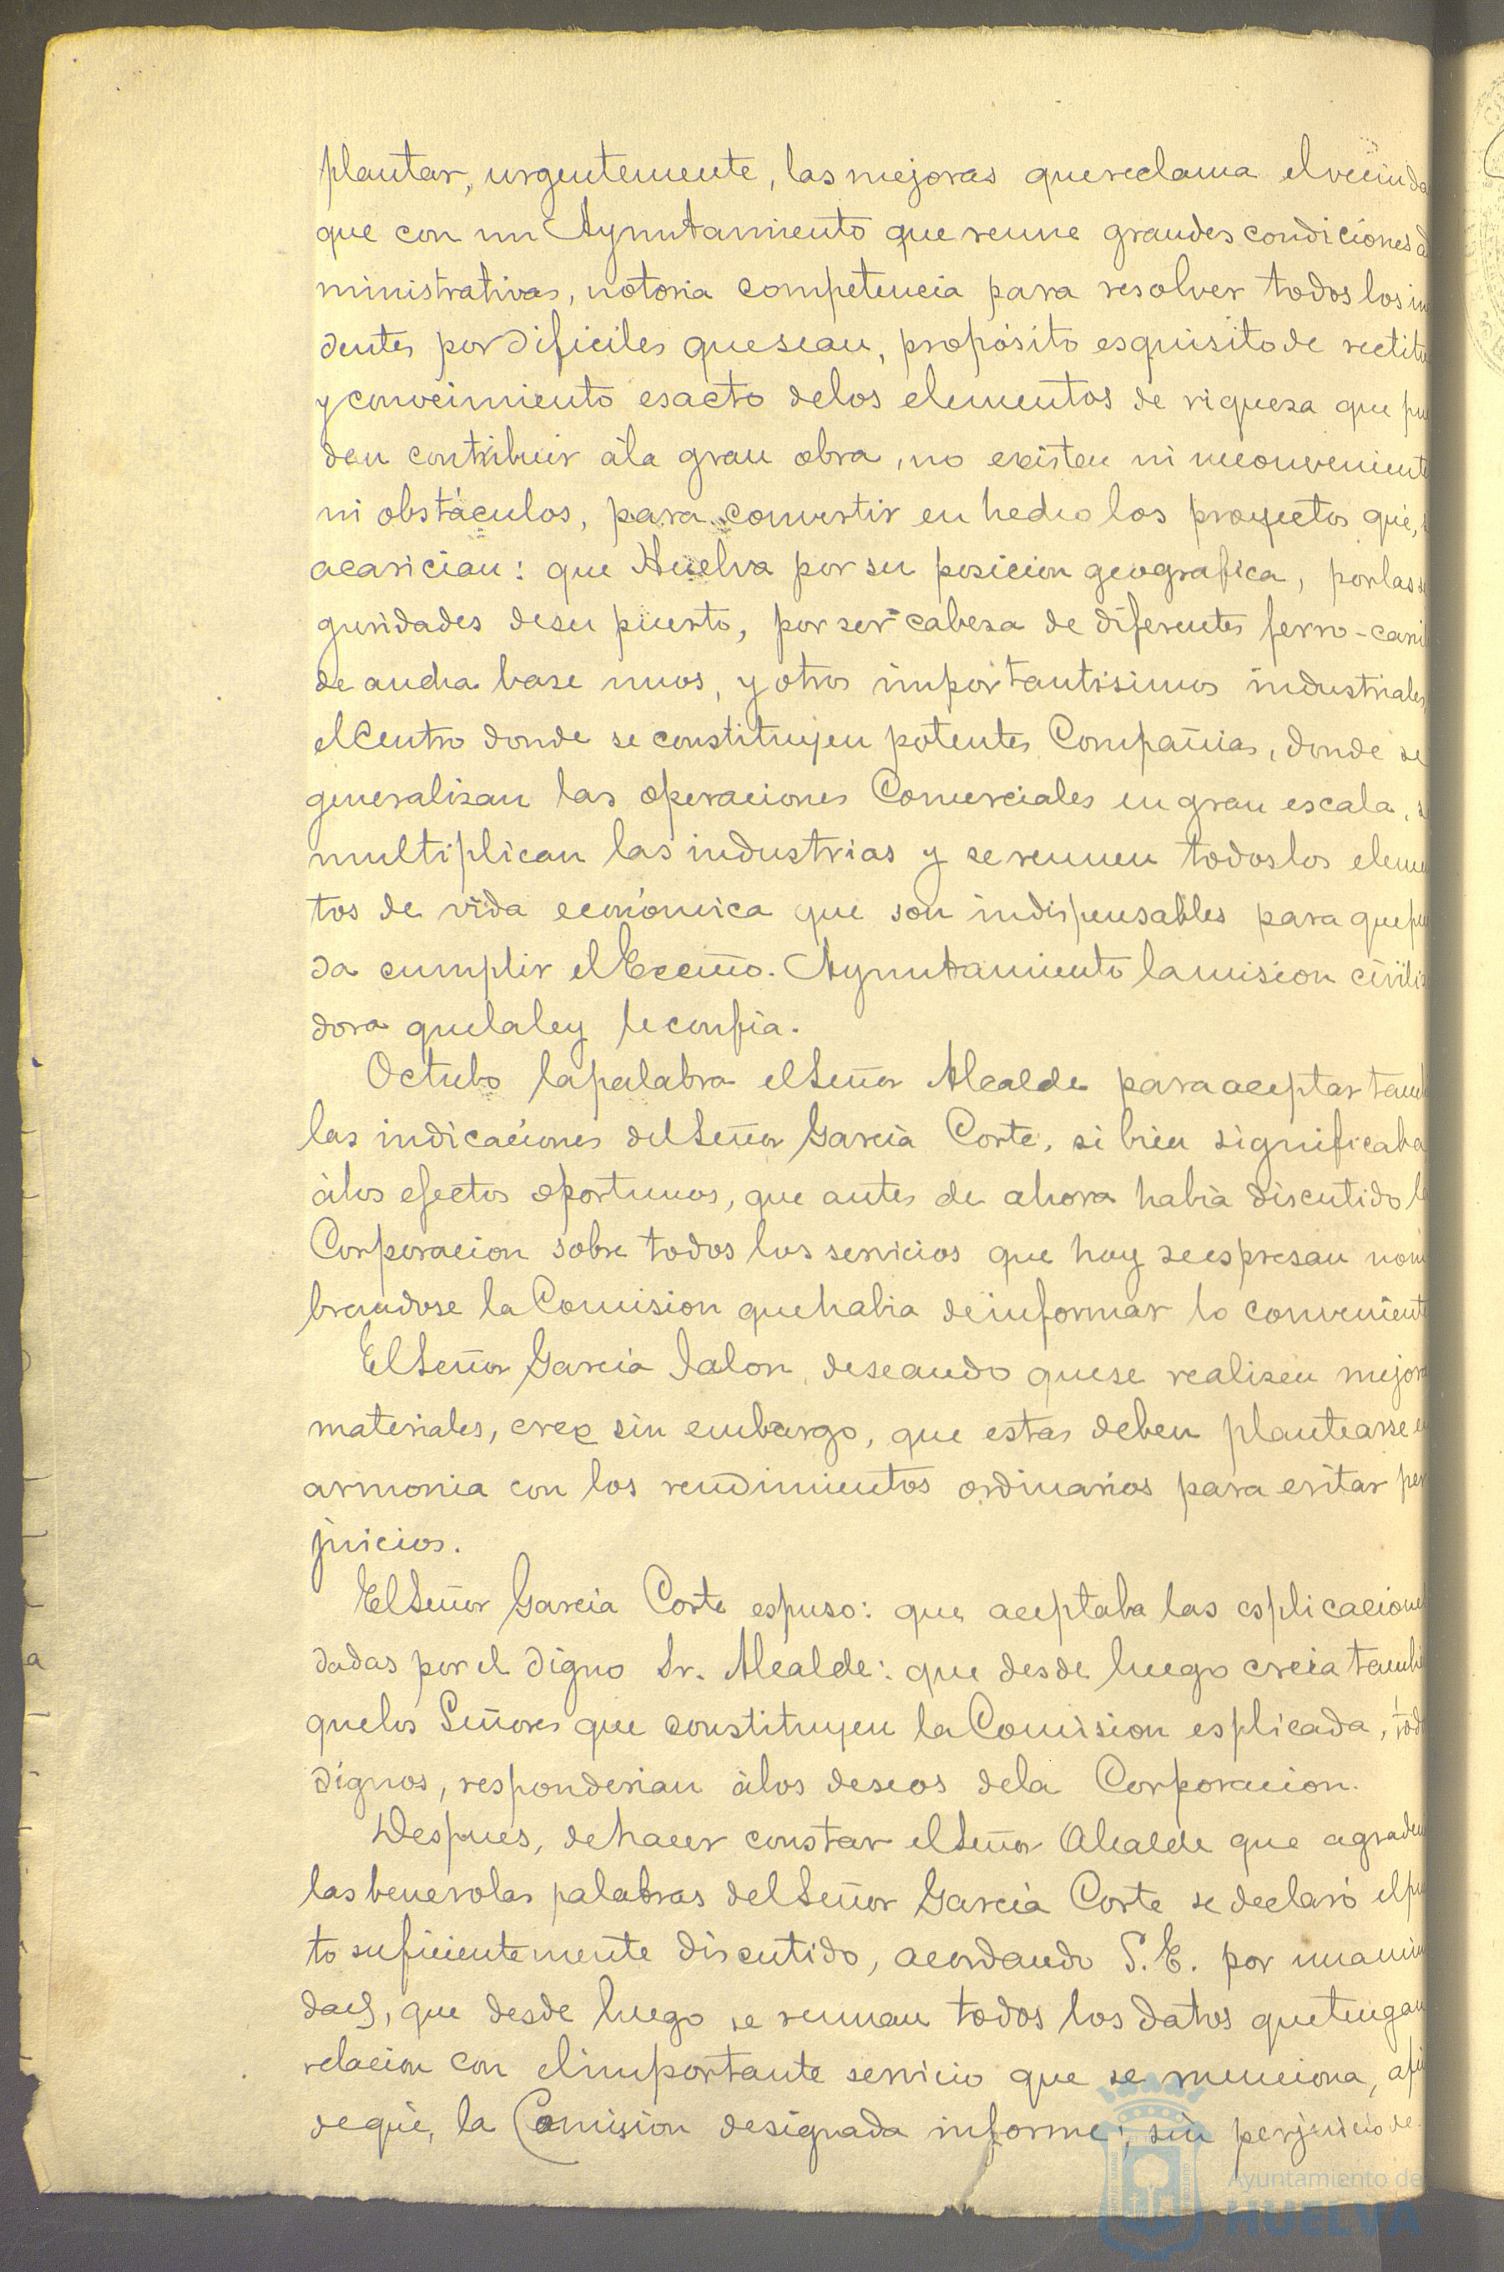 plantar, urgentemente, las mejoras que reclama el vecinda
que con un Ayuntamiento que reune grandes condiciones ad
ministrativas, notoria competencia para resolver todos los in
dentes por dificiles que sean, propósito esquisito de rectitu
y convcimiento esacto de los elementos de riqueza que pue
den contribuir á la gran obra, no existen ni inconveniente
ni obstáculos, para convertir en hecho los proyectos que,
acarician: que Huelva por su posicion geografica, por las se
guridades de su puerto, por ser cabeza de diferentes ferro-carri
de ancha base unos, y otros importantisimos industriales,
el Centro donde se constituyen potentes Compañias, donde se
generalizan las operaciones Comerciales en gran escala, se
multiplican las industrias y se reunen todos los elemen
tos de vida económica que son indispensables para que pue
da cumplir el Excmo. Ayuntamiento la mision civiliza
dora que la ley le confia.
Octubo la palabra el Señor Alcalde para aceptar tamb
las indicaciones del Señor Garcia Corte, si bien significaba
á los efectos oportunos, que antes de ahora habia discutido la
Corporacion sobre todos los servicios que hoy se espresan nom
brandose la Comision que habia de informar lo conveniente
El Señor Garcia Jalon, deseando que se realizen mejora
materiales, cree sin embargo, que estas deben plantearse en
armonia con los rendimientos ordinarios para evitar per
juicios.
El Señor Garcia Corte espuso: que aceptaba las esplicacione
dadas por el digno Sr. Alcalde: que desde luego creia tambi
que los Señores que constituyen la Comision esplicada, todo
dignos, responderian á los deseos de la Corporacion.
Despues, de hacer constar el Señor Alcalde que agradec
las benevolas palabras del Señor Garcia Corte se declaró el pu
to suficientemente discutido, acordando S.E. por unanimi
dad, que desde luego se reunan todos los datos que tengan
relacion con el importante servicio que se menciona, a fin
de que, la Comision designada informe; sin perjuicio de
Ayuntamiento de
HUELVA